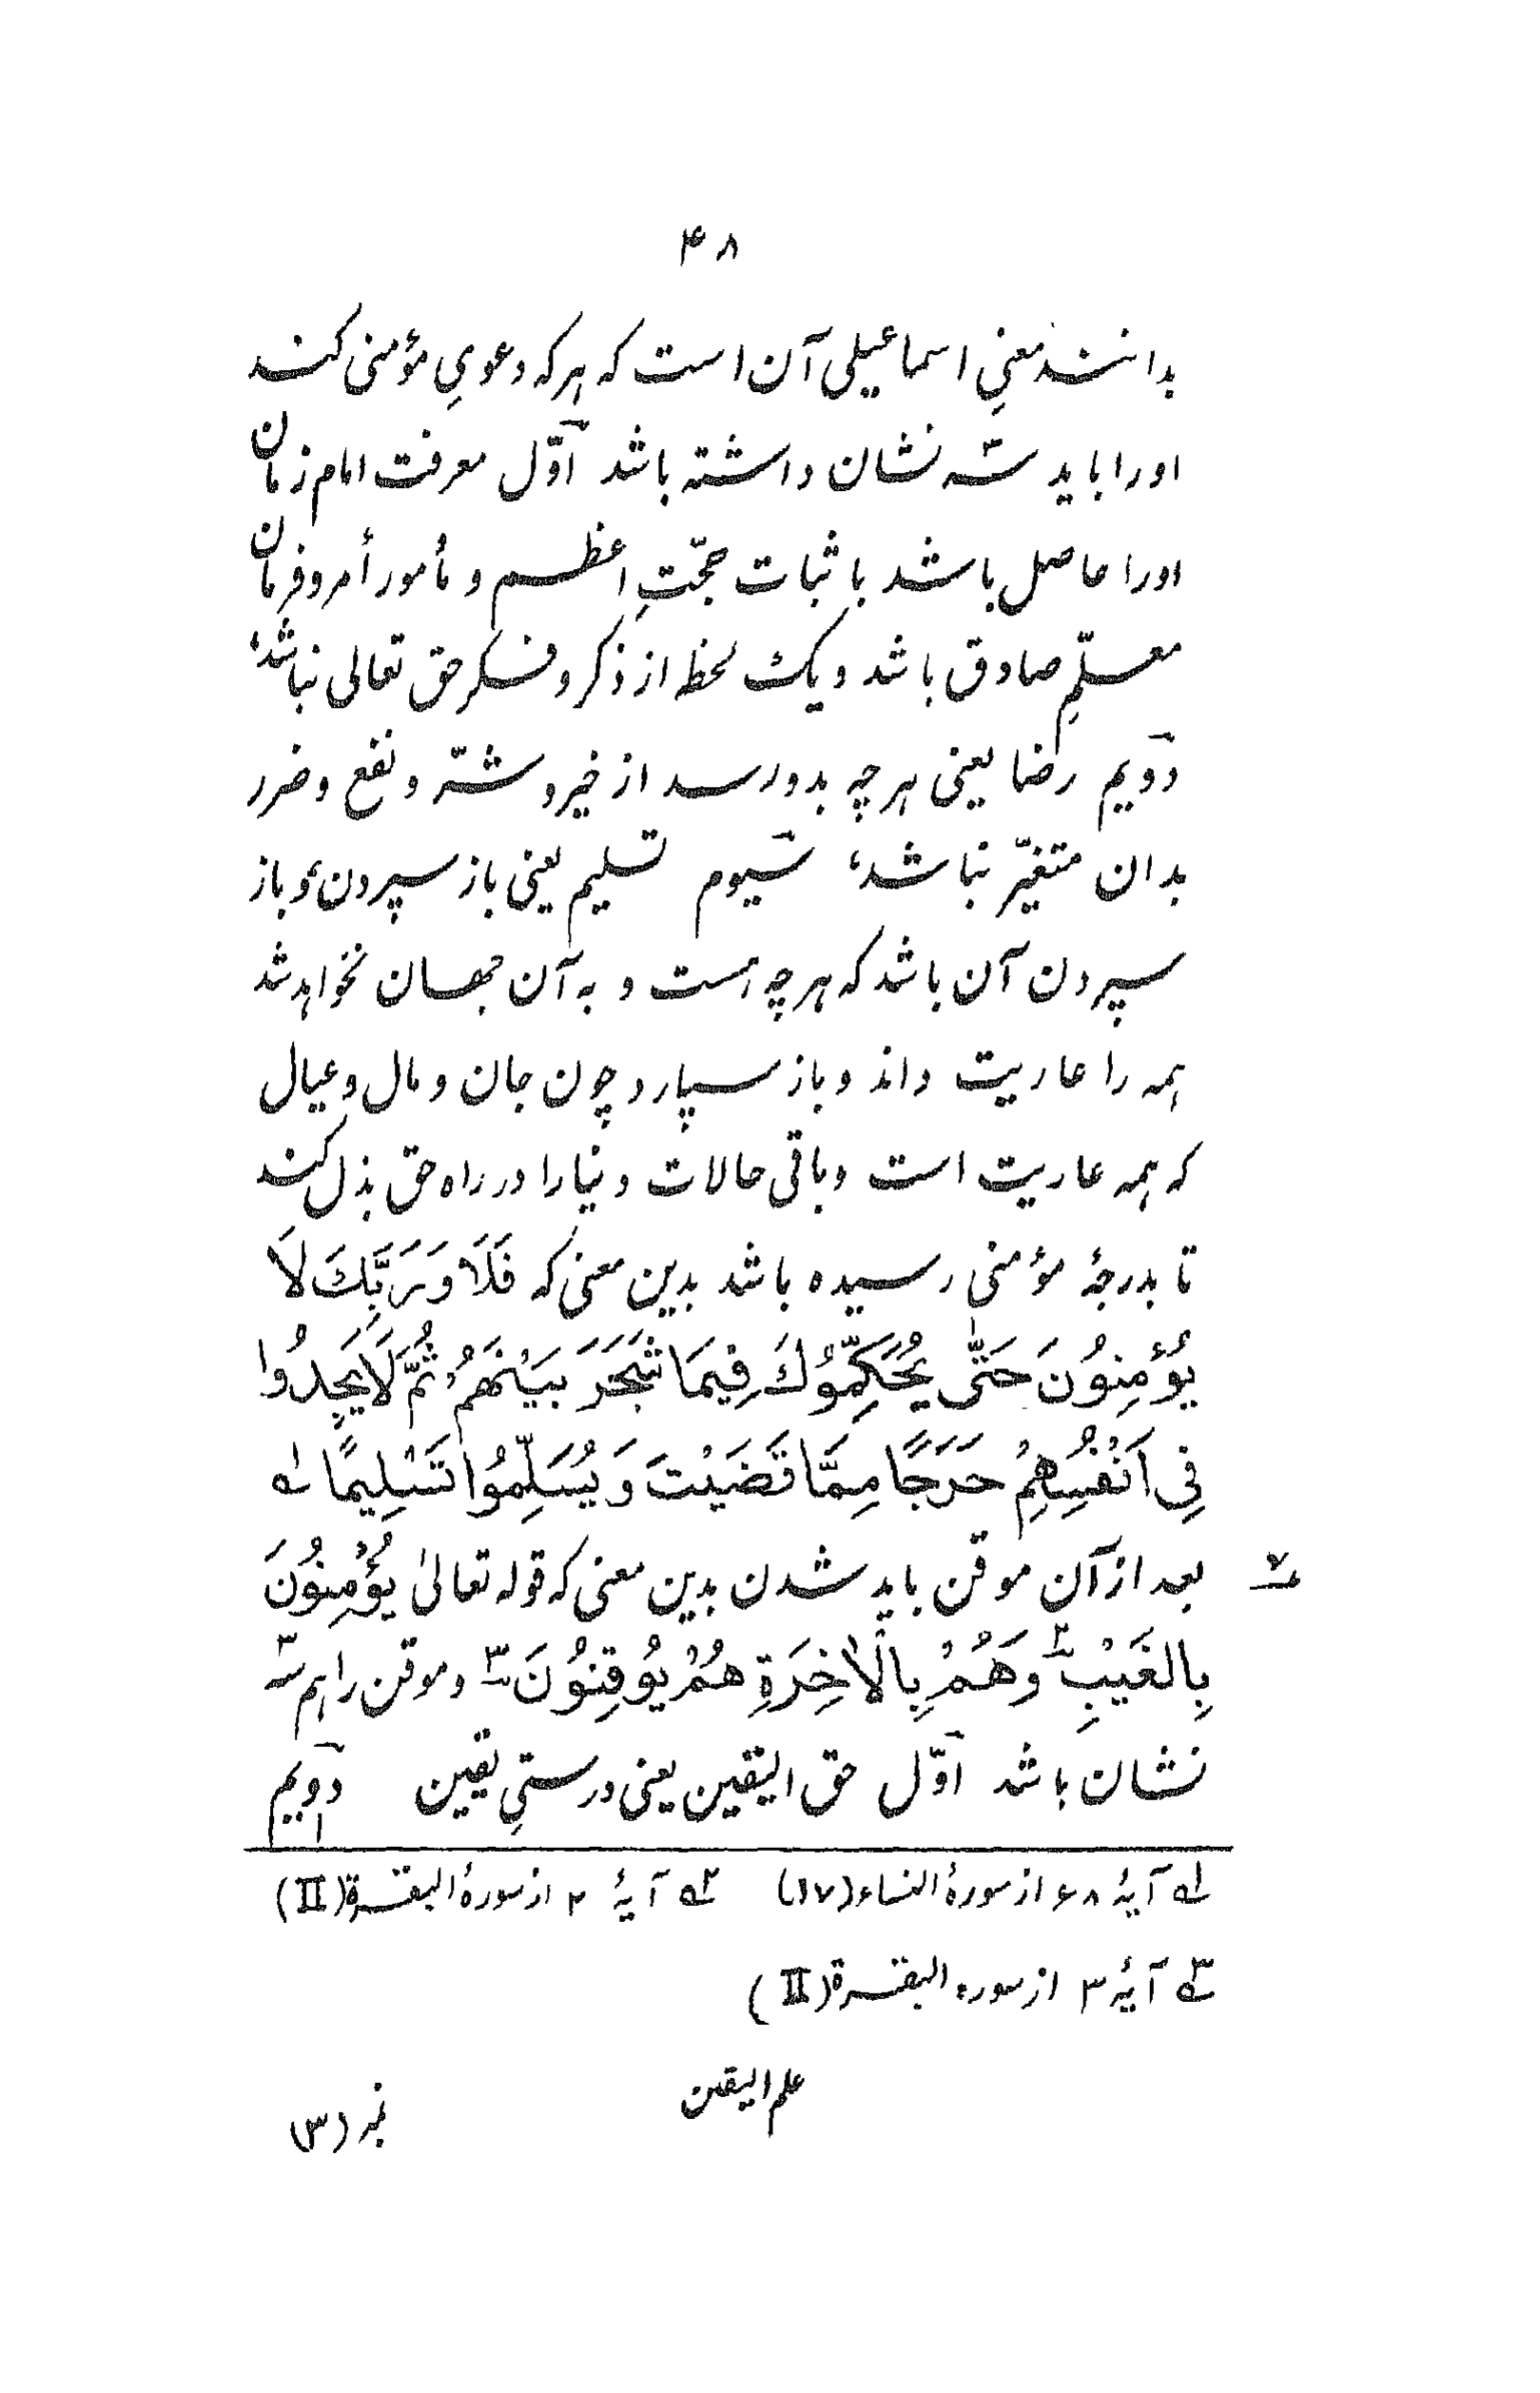 ۴۸
بدانند معنیِ اسماعیلی آن است که هر که دعویِ مؤمنی کند
اورا باید سه نشان داشته باشد اوّل معرفت امام زمان
اورا حاصل باشد با ثبات حجّتِ اعظم و مأمور أمر و فرمان
معلّمِ صادق باشد و یک لحظه از ذکر و فکر حق تعالی نباشد،
دویم رضا یعنی هر چه بدو رسد از خیر و شرّ و نفع و ضرر
بدان متغیّر نباشد، سیوم تسلیم یعنی باز سپردن، و باز
سپردن آن باشد که هر چه هست و به آن جهان نخواهد شد
همه را عاریت داند و باز سپارد چون جان و مال و عیال
که همه عاریت است و باقی حالات دنیا را در راه حق بذل کند
تا بدرجهٔ مؤمنی رسیده باشد بدین معنی که فَلَا وَرَبِّكَ لَا
يُؤْمِنُونَ حَتّٰى يُحَكِّمُوْكَ فِيمَا شَجَرَ بَيْنَهُمْ ثُمَّ لَا يَجِدُوا
فِي اَنْفُسِهِمْ حَرَجًا مِمَّا قَضَيْتَ وَ يُسَلِّمُوا تَسْلِيمًا ۱
بعد از آن موقن باید شدن بدین معنی که قوله تعالیٰ يُؤْمِنُونَ
بِالْغَيْبِ ۲ وَهُمْ بِالْاٰخِرَةِ هُمْ يُوقِنُونَ ۳ و موقن را هم سه
نشان باشد اوّل حق الیقین یعنی درستیِ یقین دویم
۷
۱ آیهٔ ۶۸ از سورهٔ النساء (۱۷) ۲ آیهٔ ۲ از سورهٔ البقرة (II)
۳ آیهٔ ۳ از سوره البقرة (II)
علم الیقین
نمبر (۳)